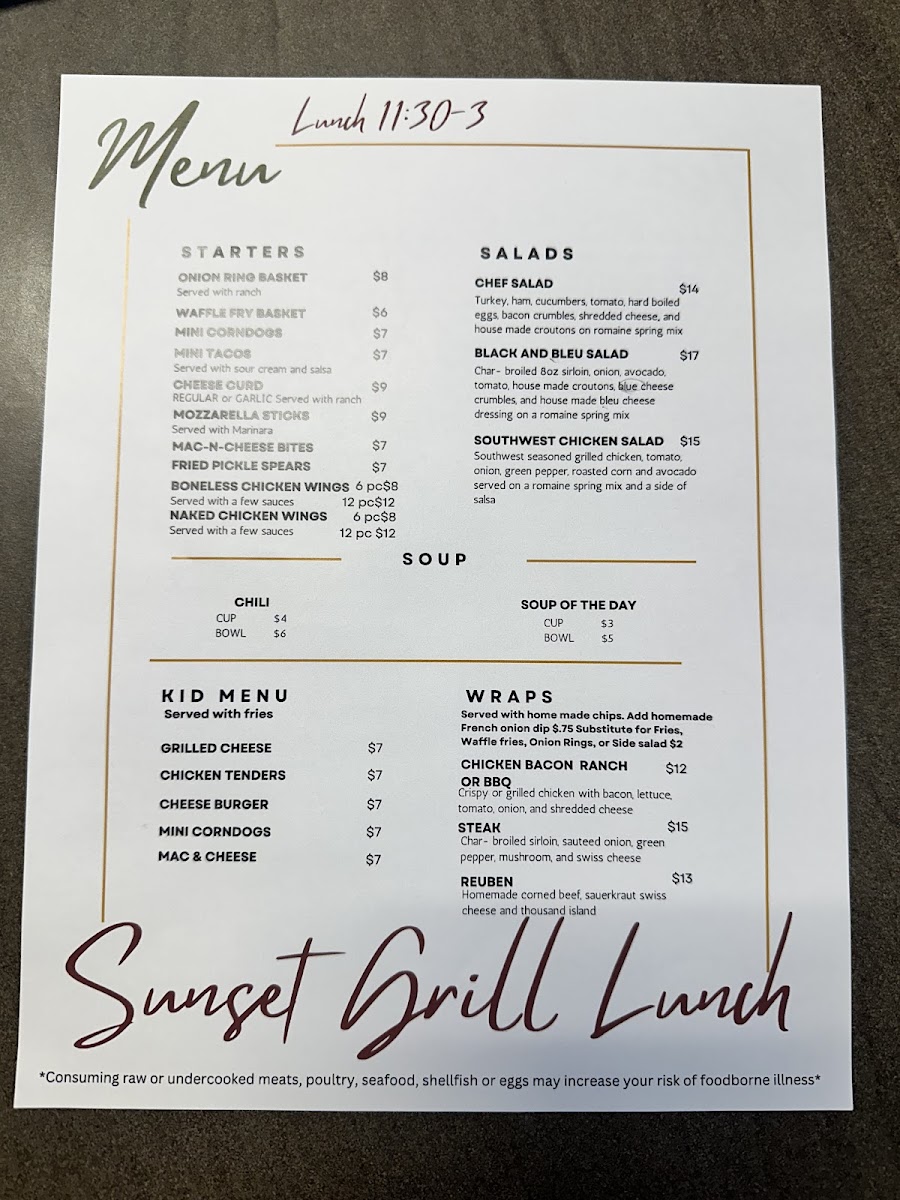 Menu
Lunch 11:30-3
STARTERS
ONION RING BASKET $8
Served with ranch
WAFFLE FRY BASKET $6
MINI CORNDOGS $7
MINI TACOS $7
Served with sour cream and salsa
CHEESE CURD $9
REGULAR or GARLIC Served with ranch
MOZZARELLA STICKS $9
Served with Marinara
MAC-N-CHEESE BITES $7
FRIED PICKLE SPEARS $7
BONELESS CHICKEN WINGS 6 pc$8
Served with a few sauces 12 pc$12
NAKED CHICKEN WINGS 6 pc$8
Served with a few sauces 12 pc $12
SALADS
CHEF SALAD $14
Turkey, ham, cucumbers, tomato, hard boiled
eggs, bacon crumbles, shredded cheese, and
house made croutons on romaine spring mix
BLACK AND BLEU SALAD $17
Char- broiled 8oz sirloin, onion, avocado,
tomato, house made croutons, blue cheese
crumbles, and house made bleu cheese
dressing on a romaine spring mix
SOUTHWEST CHICKEN SALAD $15
Southwest seasoned grilled chicken, tomato,
onion, green pepper, roasted corn and avocado
served on a romaine spring mix and a side of
salsa
SOUP
CHILI
CUP $4
BOWL $6
SOUP OF THE DAY
CUP $3
BOWL $5
KID MENU
Served with fries
GRILLED CHEESE $7
CHICKEN TENDERS $7
CHEESE BURGER $7
MINI CORNDOGS $7
MAC & CHEESE $7
WRAPS
Served with home made chips. Add homemade
French onion dip $.75 Substitute for Fries,
Waffle fries, Onion Rings, or Side salad $2
CHICKEN BACON RANCH $12
OR BBQ
Crispy or grilled chicken with bacon, lettuce,
tomato, onion, and shredded cheese
STEAK $15
Char- broiled sirloin, sauteed onion, green
pepper, mushroom, and swiss cheese
REUBEN $13
Homemade corned beef, sauerkraut swiss
cheese and thousand island
Sunset Grill Lunch
*Consuming raw or undercooked meats, poultry, seafood, shellfish or eggs may increase your risk of foodborne illness*